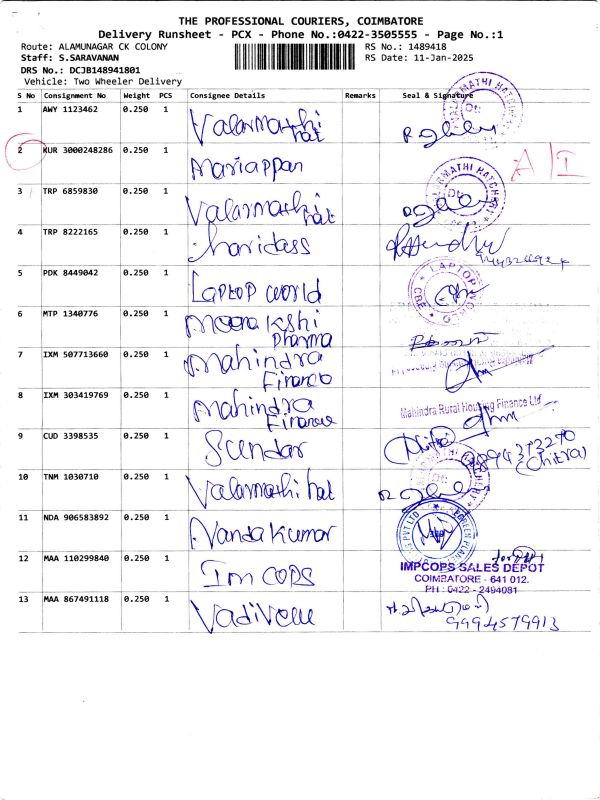 THE PROFESSIONAL COURIERS, COIMBATORE
Delivery Runsheet - PCX - Phone No.:0422-3505555 - Page No.:1
Route: ALAMUNAGAR CK COLONY
RS No.: 1489418
Staff: S.SARAVANAN
RS Date: 11-Jan-2025
DRS No.: DCJB148941801
Vehicle: Two Wheeler Delivery
S No Consignment No Weight PCS Consignee Details Remarks Seal & Signature
1 AWY 1123462 0.250 1 Valarmathi hat
2 KUR 3000248286 0.250 1 Mariappan A I
3 TRP 6859830 0.250 1 Valarmathi hat
4 TRP 8222165 0.250 1 haridass
5 PDK 8449042 0.250 1 Laptop world
LAPTOP WORLD CBE
6 MTP 1340776 0.250 1 Meenakshi Pharma
7 IXM 507713660 0.250 1 Mahindra Finance
8 IXM 303419769 0.250 1 Mahindra Finance
Mahindra Rural Housing Finance Ltd
9 CUD 3398535 0.250 1 Sundar
(Chitra)
10 TNM 1030710 0.250 1 Valarmathi hat
11 NDA 906583892 0.250 1 Nanda Kumar
12 MAA 110299840 0.250 1 Imcops
IMPCOPS SALES DEPOT
COIMBATORE - 641 012.
PH : 0422 - 2494081
13 MAA 867491118 0.250 1 Vadivelu
9994579913